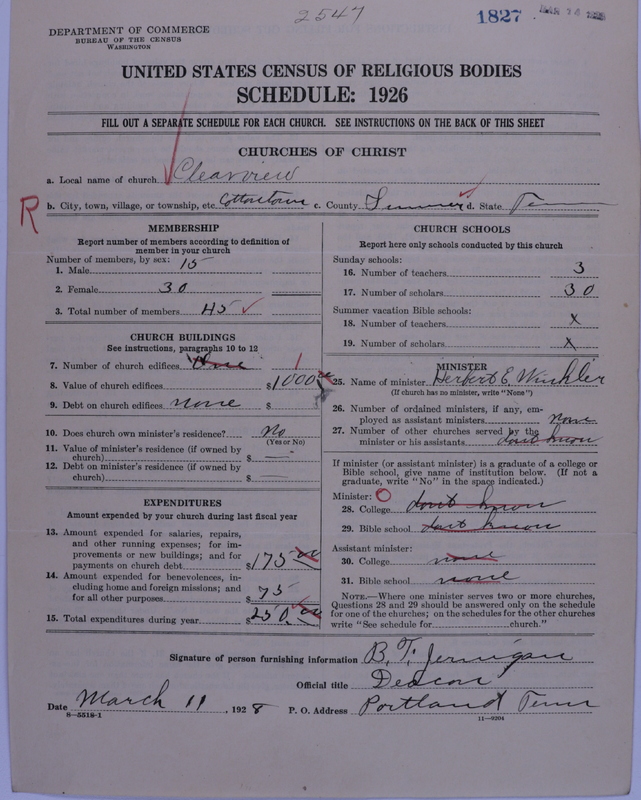 2547
1827
DEPARTMENT OF COMMERCE
BUREAU OF THE CENSUS
WASHINGTON
UNITED STATES CENSUS OF RELIGIOUS BODIES
SCHEDULE: 1926
FILL OUT A SEPARATE SCHEDULE FOR EACH CHURCH. SEE INSTRUCTIONS ON THE BACK OF THIS SHEET
CHURCHES OF CHRIST
a. Local name of church Clearview
R
b. City, town, village, or township, etc. Cottontown c. County Sumner d. State Tenn
MEMBERSHIP
Report number of members according to definition of
member in your church
Number of members, by sex:
1. Male 15
2. Female 30
3. Total number of members 45
CHURCH BUILDINGS
See instructions, paragraphs 10 to 12
7. Number of church edifices One 1
8. Value of church edifices $1000 00
9. Debt on church edifices none $
10. Does church own minister's residence? No
(Yes or No)
11. Value of minister's residence (if owned by
church) $ —
12. Debt on minister's residence (if owned by
church) $ —
EXPENDITURES
Amount expended by your church during last fiscal year
13. Amount expended for salaries, repairs,
and other running expenses; for im-
provements or new buildings; and for
payments on church debt $175 00
14. Amount expended for benevolences, in-
cluding home and foreign missions; and
for all other purposes $75
15. Total expenditures during year $250 00
CHURCH SCHOOLS
Report here only schools conducted by this church
Sunday schools:
16. Number of teachers 3
17. Number of scholars 30
Summer vacation Bible schools:
18. Number of teachers X
19. Number of scholars X
MINISTER
25. Name of minister Herbert E. Winkler
(If church has no minister, write "None")
26. Number of ordained ministers, if any, em-
ployed as assistant ministers none
27. Number of other churches served by the
minister or his assistants dont know
If minister (or assistant minister) is a graduate of a college or
Bible school, give name of institution below. (If not a
graduate, write "No" in the space indicated.)
Minister:
28. College dont know
29. Bible school dont know
Assistant minister:
30. College none
31. Bible school none
NOTE.—Where one minister serves two or more churches,
Questions 28 and 29 should be answered only on the schedule
for one of the churches; on the schedules for the other churches
write "See schedule for church."
Signature of person furnishing information B. T. Jernigan
Official title Deacon
Date March 11, 1928 P. O. Address Portland Tenn
8—5518-1
11—9204